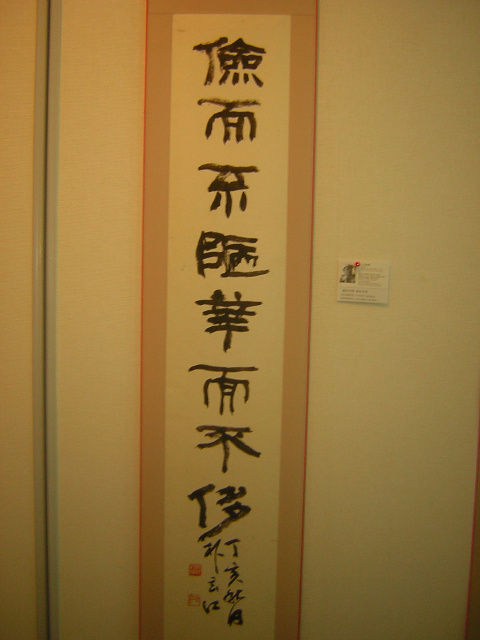 儉而不陋華而不侈
丁亥秋月